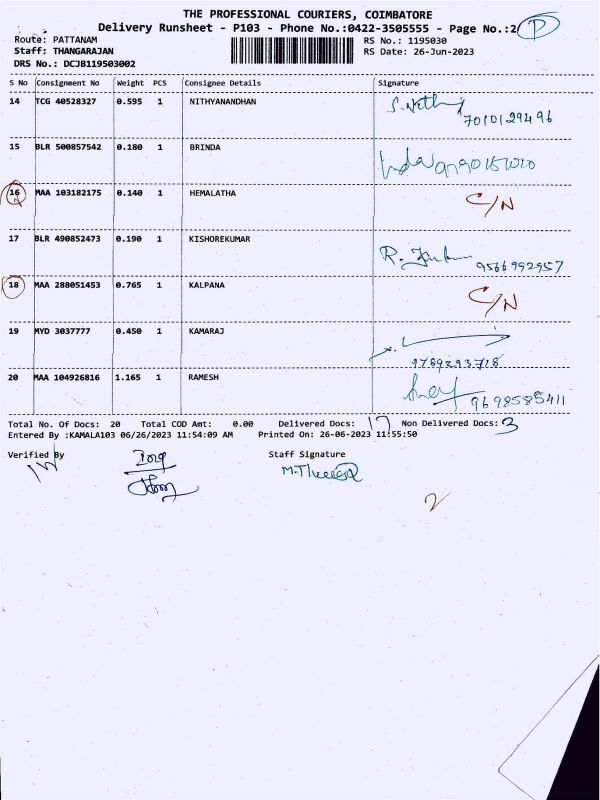 THE PROFESSIONAL COURIERS, COIMBATORE
Delivery Runsheet - P103 - Phone No.:0422-3505555 - Page No.:2/ P
Route: PATTANAM RS No.: 1195030
Staff: THANGARAJAN RS Date: 26-Jun-2023
DRS No.: DCJB119503002
S No Consignment No Weight PCS Consignee Details Signature
14 TCG 40528327 0.595 1 NITHYANANDHAN
7010129496
15 BLR 500857542 0.180 1 BRINDA
16 MAA 103182175 0.140 1 HEMALATHA C/N
17 BLR 490852473 0.190 1 KISHOREKUMAR
9566992957
18 MAA 288051453 0.765 1 KALPANA C/N
19 MYD 3037777 0.450 1 KAMARAJ
9789293718
20 MAA 104926816 1.165 1 RAMESH
9698585411
Total No. Of Docs: 20 Total COD Amt: 0.00 Delivered Docs: 17 Non Delivered Docs: 3
Entered By :KAMALA103 06/26/2023 11:54:09 AM Printed On: 26-06-2023 11:55:50
Verified By Staff Signature
2